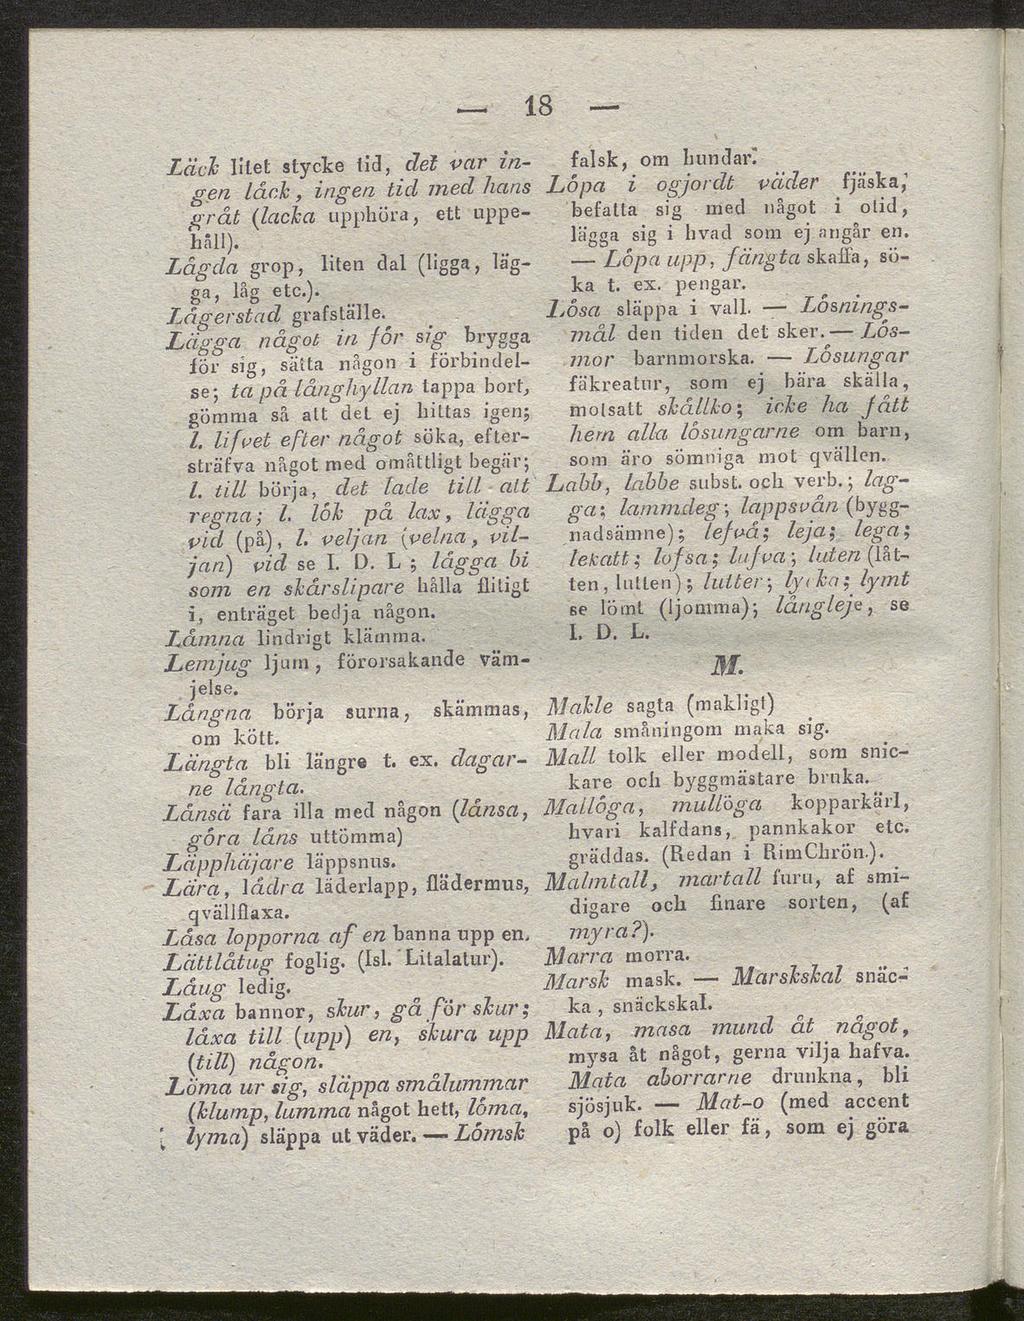 — 18 —
Läck litet stycke tid, det var in-
gen låck, ingen tid med hans
gråt (lacka upphöra, ett uppe-
håll).
Lågda grop, liten dal (ligga, läg-
ga, låg etc.).
Lägerstad grafställe.
Lägga något in för sig brygga
för sig, sätta någon i förbindel-
se; ta på långhyllan tappa bort,
gömma så att det ej hittas igen;
l. lifvet efter något söka, efter-
sträfva något med omåttligt begär;
l. till börja, det lade till att
regna; l. lök på lax, lägga
vid (på), l. veljan (velna, vil-
jan) vid se I. D. L; lågga bi
som en skårslipare hålla flitigt
i, enträget bedja någon.
Låmna lindrigt klämma.
Lemjug ljum, förorsakande väm-
jelse.
Långna börja surna, skämmas,
om kött.
Längta bli längre t. ex. dagar-
ne långta.
Lånsä fara illa med någon (lånsa,
góra låns uttömma)
Läpphäjare läppsnus.
Lära, lådra läderlapp, flädermus,
qvällflaxa.
Låsa lopporna af en banna upp en.
Lättlåtug foglig. (Isl. Litalatur).
Låug ledig.
Låxa bannor, skur, gå för skur;
låxa till (upp) en, skura upp
(till) någon.
Löma ur sig, släppa smålummar
(klump, lumma något hett, lóma,
lyma) släppa ut väder. — Lómsk
falsk, om hundar.
Lópa i ogjordt väder fjäska,
befatta sig med något i otid,
lägga sig i hvad som ej angår en.
— Lópa upp, fängta skaffa, sö-
ka t. ex. pengar.
Lósa släppa i vall. — Lósnings-
mål den tiden det sker. — Lós-
mor barnmorska. — Lósungar
fäkreatur, som ej bära skälla,
motsatt skållko; icke ha fått
hem alla lósungarne om barn,
som äro sömniga mot qvällen.
Labb, labbe subst. och verb.; lag-
ga; lammdeg; lappsvån (bygg-
nadsämne); lefvå; leja; lega;
lekatt; lofsa; lufva; luten (låt-
ten, lutten); lutter; lycka; lymt
se lömt (ljomma); långleje, se
I. D. L.
M.
Makle sagta (makligt)
Mala småningom maka sig.
Mall tolk eller modell, som snic-
kare och byggmästare bruka.
Mallóga, mullöga kopparkärl,
hvari kalfdans, pannkakor etc.
gräddas. (Redan i RimChrön.).
Malmtall, martall furu, af smi-
digare och finare sorten, (af
myra?).
Marra morra.
Marsk mask. — Marskskal snäc-
ka, snäckskal.
Mata, masa mund åt något,
mysa åt något, gerna vilja hafva.
Mata aborrarne drunkna, bli
sjösjuk. — Mat-o (med accent
på o) folk eller fä, som ej göra